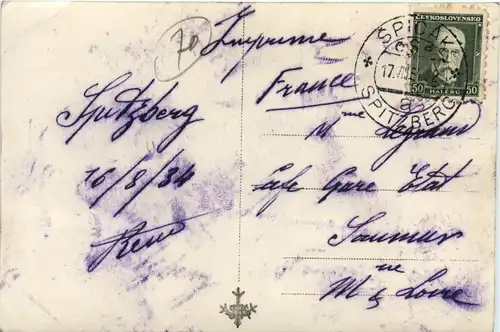 70
Imprimé
France
Spitzberg
16/8/34
René
Mme Legrand
Café Gare Etat
Saumur
M ne & Loire
ČESKOSLOVENSKO
50 HALÉŘŮ 50
SPITZBERG
17.